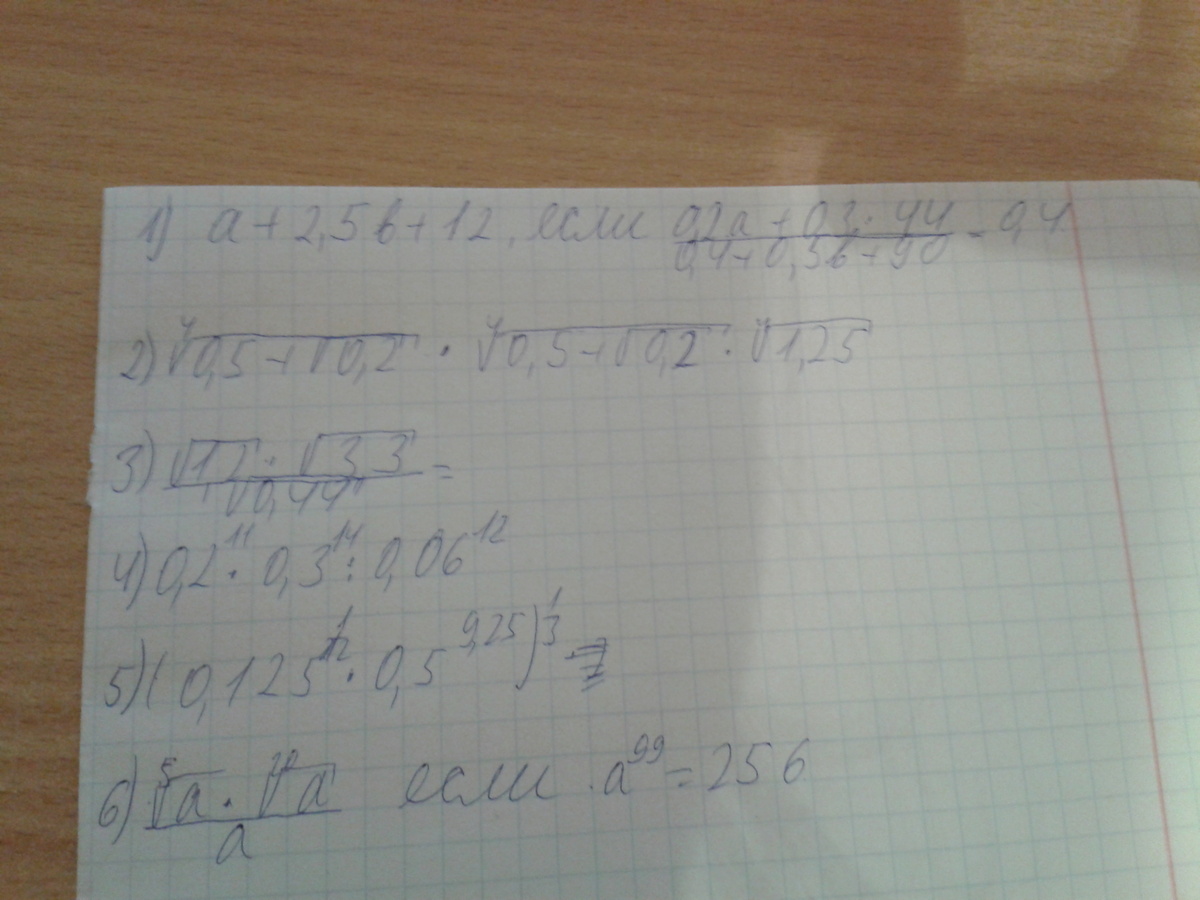 1) a + 2,5в + 12, если (0,2а + 0,3 · 44)/(0,4 + 0,5в + 90) = 0,4
2) ∜(0,5 + √0,2) · ∜(0,5 + √0,2) · ∜1,25
3) (√1,2 · √3,3)/√0,44 =
4) 0,2¹¹ · 0,3¹⁴ : 0,06¹²
5) (0,125^(1/12) · 0,5^(9,25))^(1/3)
6) (⁵√a · ²⁰√a)/a если a⁹⁹ = 256